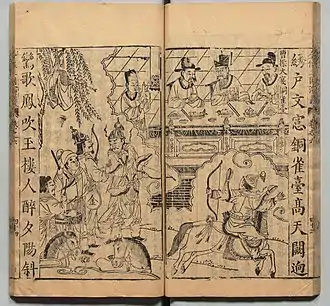 綺戶文窓銅雀臺高天闕逈
曹操大宴銅雀臺
鸞歌鳳吹玉樓人醉夕陽斜